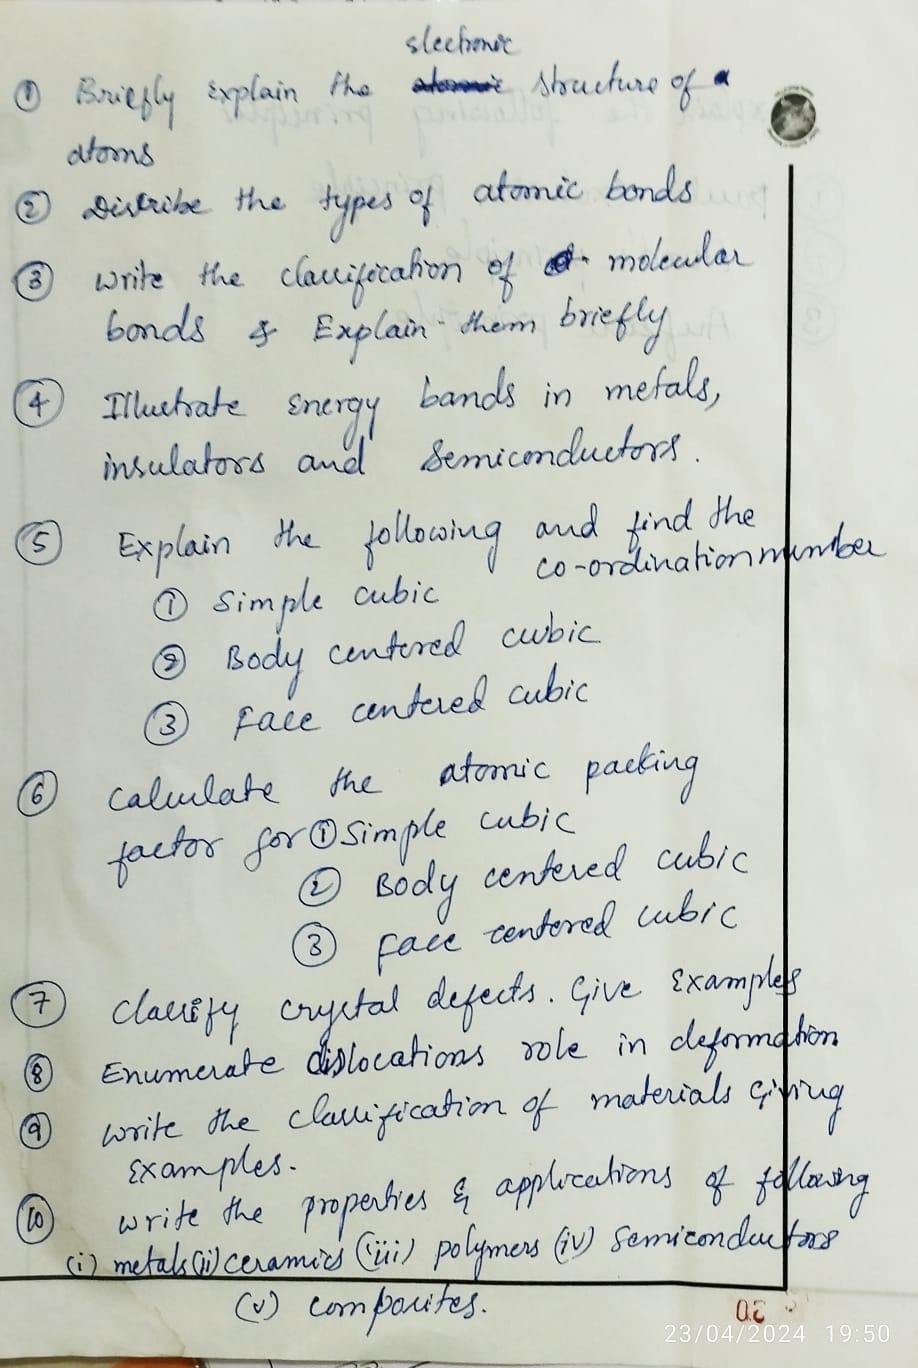 electronic
① Briefly explain the structure of
atoms
② Discribe the types of atomic bonds
③ write the classification of molecular
bonds & Explain them briefly
④ Illustrate energy bands in metals,
insulators and semiconductors.
⑤ Explain the following and find the
co-ordination number
① Simple cubic
② Body centered cubic
③ Face centered cubic
⑥ calculate the atomic packing
factor for ① Simple cubic
② Body centered cubic
③ face centered cubic
⑦ Classify crystal defects. Give Examples
⑧ Enumerate dislocations role in deformation
⑨ write the classification of materials giving
Examples.
⑩ write the properties & applications of following
(i) metals (ii) ceramics (iii) polymers (iv) Semiconductors
(v) composites.
23/04/2024 19:50